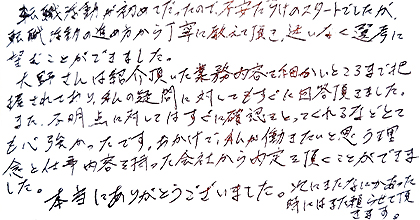 転職活動が初めてだったので、不安だらけのスタートでしたが、
転職活動の進め方から丁寧に教えて頂き、迷いなく選考に
望むことができました。
大野さんは紹介頂いた業務内容を細かいところまで把
握されており、私の疑問に対してもすぐに回答頂きました。
また、不明点に対してはすぐに確認をとってくれるなどとて
も心強かったです。おかげで、私が働きたいと思う理
念と仕事内容を持った会社から内定を頂くことができま
した。本当にありがとうございました。次にまたなにかあった
時にはまた頼らせて頂
きます。